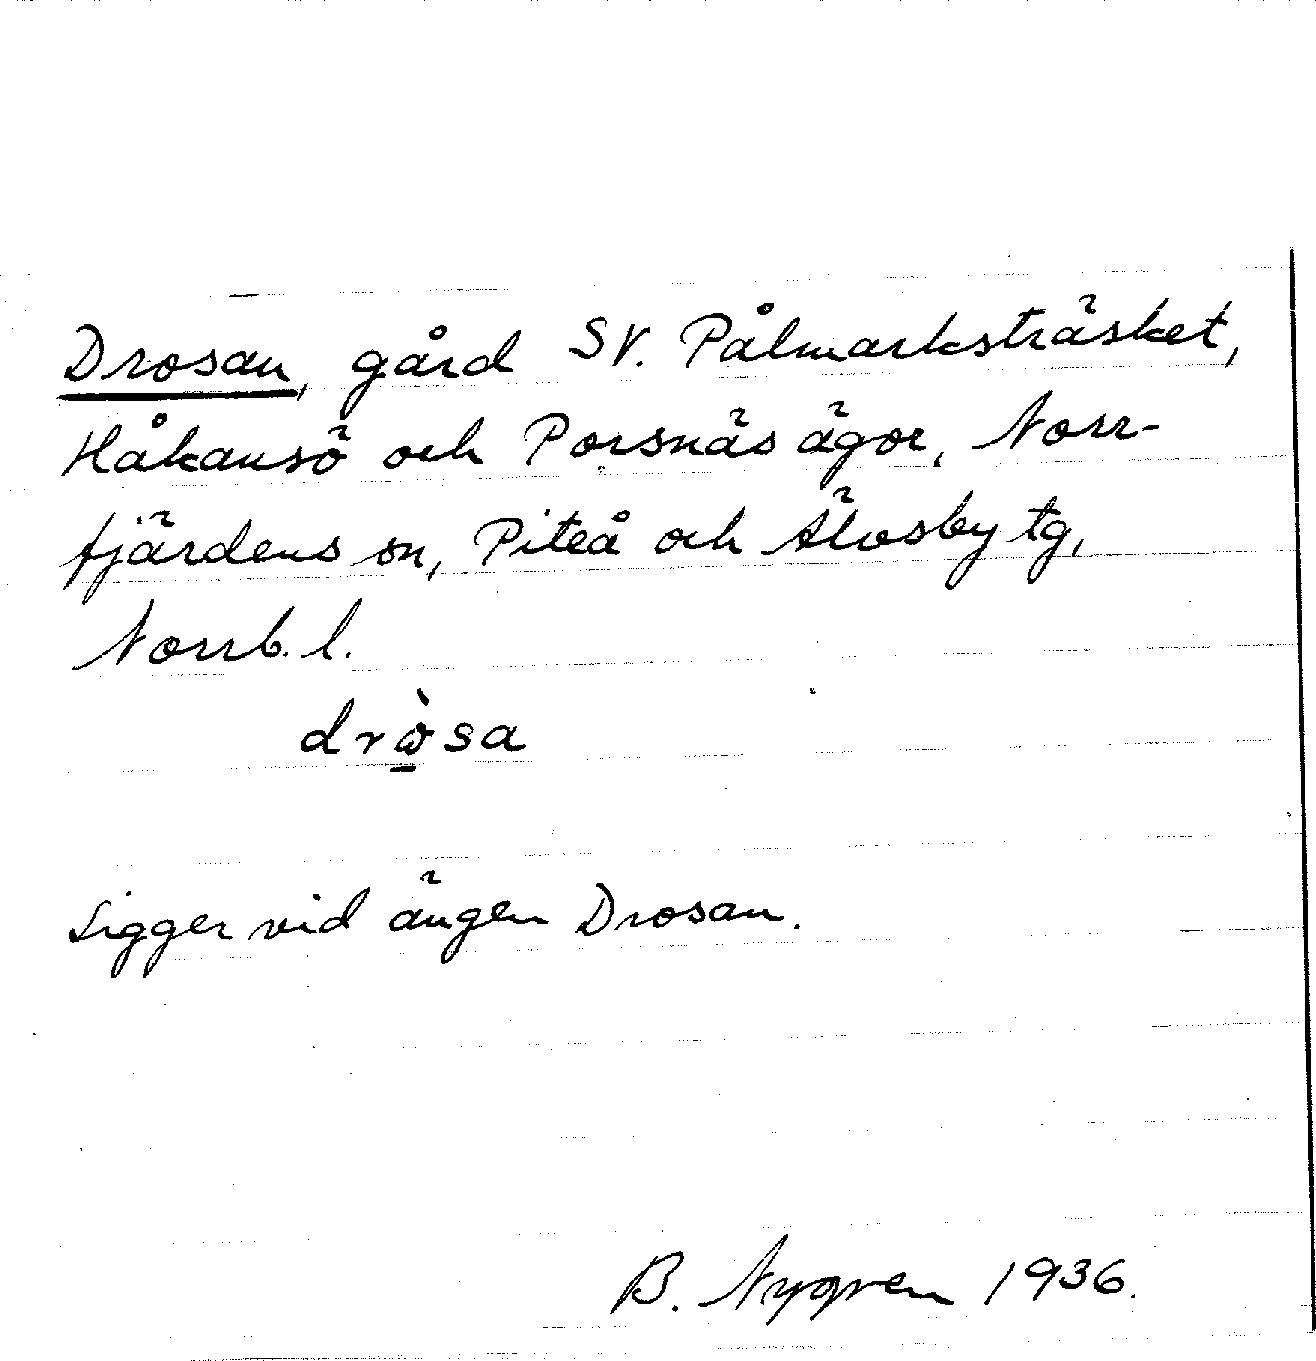 Drosan, gård SV. Pålmarksträsket,
Håkansö och Porsnäs ägor, Norr-
fjärdens sn, Piteå och Älvsby tg,
Norrb. l.
drὼ̲sa
Ligger vid ängen Drosan.
B. Nygren 1936.